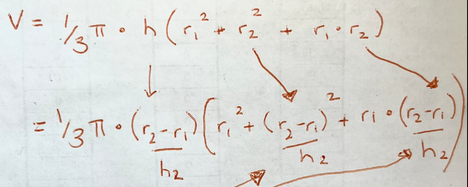 V = 1/3 π • h ( r₁² + r₂² + r₁ • r₂ )
= 1/3 π • (r₂-r₁)/h₂ ( r₁² + (r₂-r₁)²/h₂ + r₁ • (r₂-r₁)/h₂ )